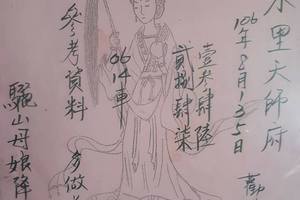 水里天師府
106年8月135日 勸
壹叁肆陸
貳捌肆柒
0614車
參考資料 多做
驪山母娘降